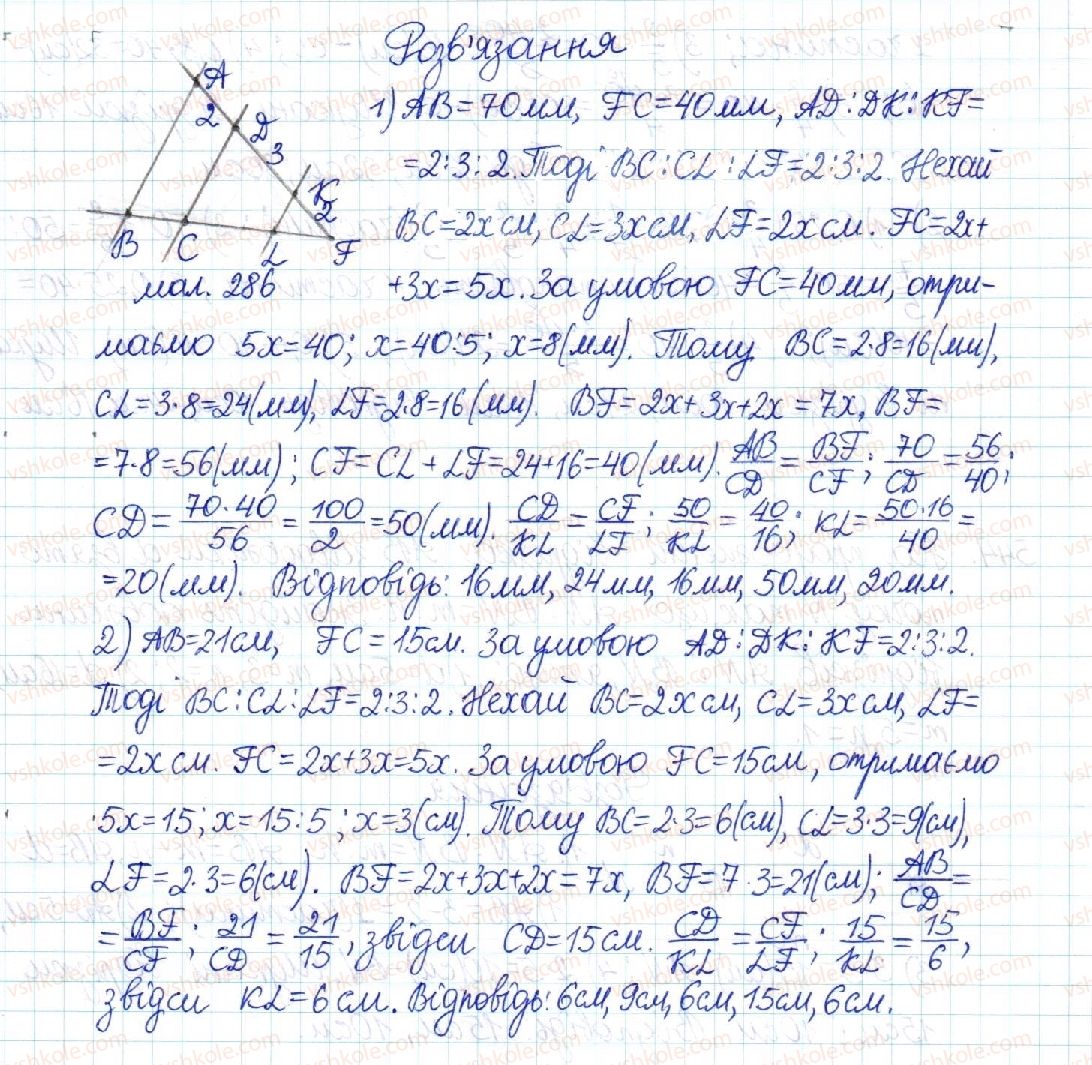 Розв'язання
A
2
D
3
K
2
B C L F
мал. 286
1) AB=70мм, FC=40мм, AD:DK:KF=
=2:3:2. Тоді BC:CL:LF=2:3:2. Нехай
BC=2x см, CL=3x см, LF=2x см. FC=2x+
+3x=5x. За умовою FC=40мм, отри-
маємо 5x=40; x=40:5; x=8(мм). Тому BC=2·8=16(мм),
CL=3·8=24(мм), LF=2·8=16(мм). BF=2x+3x+2x=7x, BF=
=7·8=56(мм); CF=CL+LF=24+16=40(мм). AB/CD=BF/CF; 70/CD=56/40;
CD=70·40/56=100/2=50(мм). CD/KL=CF/LF; 50/KL=40/16; KL=50·16/40=
=20(мм). Відповідь: 16мм, 24мм, 16мм, 50мм, 20мм.
2) AB=21см, FC=15см. За умовою AD:DK:KF=2:3:2.
Тоді BC:CL:LF=2:3:2. Нехай BC=2x см, CL=3x см, LF=
=2x см. FC=2x+3x=5x. За умовою FC=15см, отримаємо
5x=15; x=15:5; x=3(см). Тому BC=2·3=6(см), CL=3·3=9(см),
LF=2·3=6(см). BF=2x+3x+2x=7x, BF=7·3=21(см); AB/CD=
=BF/CF; 21/CD=21/15, звідси CD=15см. CD/KL=CF/LF; 15/KL=15/6,
звідси KL=6см. Відповідь: 6см, 9см, 6см, 15см, 6см.